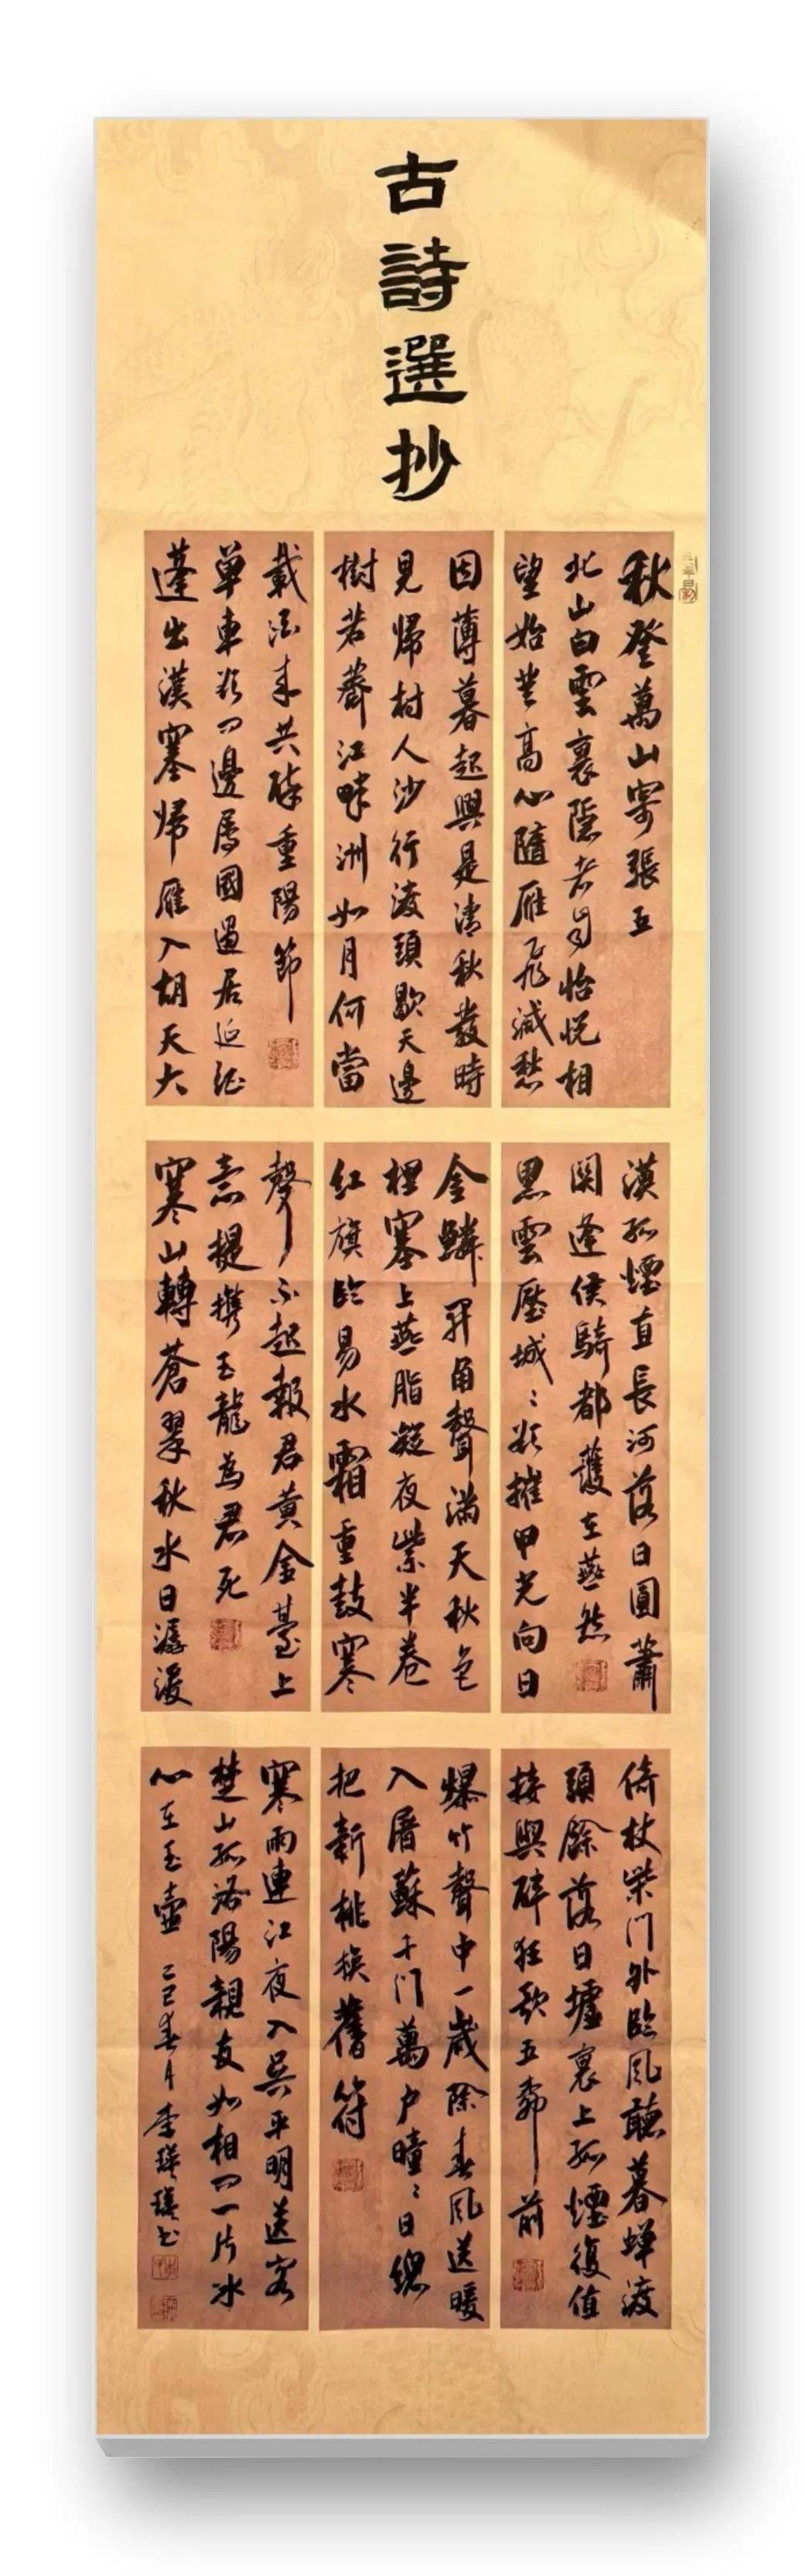 古詩選抄
秋登萬山寄張五
北山白雲裏隱者自怡悅相
望始登高心隨雁飛滅愁
因薄暮起興是清秋發時
見歸村人沙行渡頭歇天邊
樹若薺江畔洲如月何當
載酒來共醉重陽節
單車欲問邊屬國過居延征
蓬出漢塞歸雁入胡天大
漠孤煙直長河落日圓蕭
関逢侯騎都護在燕然
黑雲壓城〻欲摧甲光向日
金鱗開角聲滿天秋色
裡塞上燕脂凝夜紫半卷
紅旗臨易水霜重鼓寒
聲不起報君黃金臺上
意提携玉龍為君死
寒山轉蒼翠秋水日潺湲
倚杖柴門外臨風聽暮蟬渡
頭餘落日墟裏上孤煙復值
接與醉狂歌五柳前
爆竹聲中一歲除春風送暖
入屠蘇千門萬户曈〻日總
把新桃換舊符
寒雨連江夜入吳平明送客
楚山孤洛陽親友如相問一片冰
心在玉壺 乙巳春月李瑛瑛书